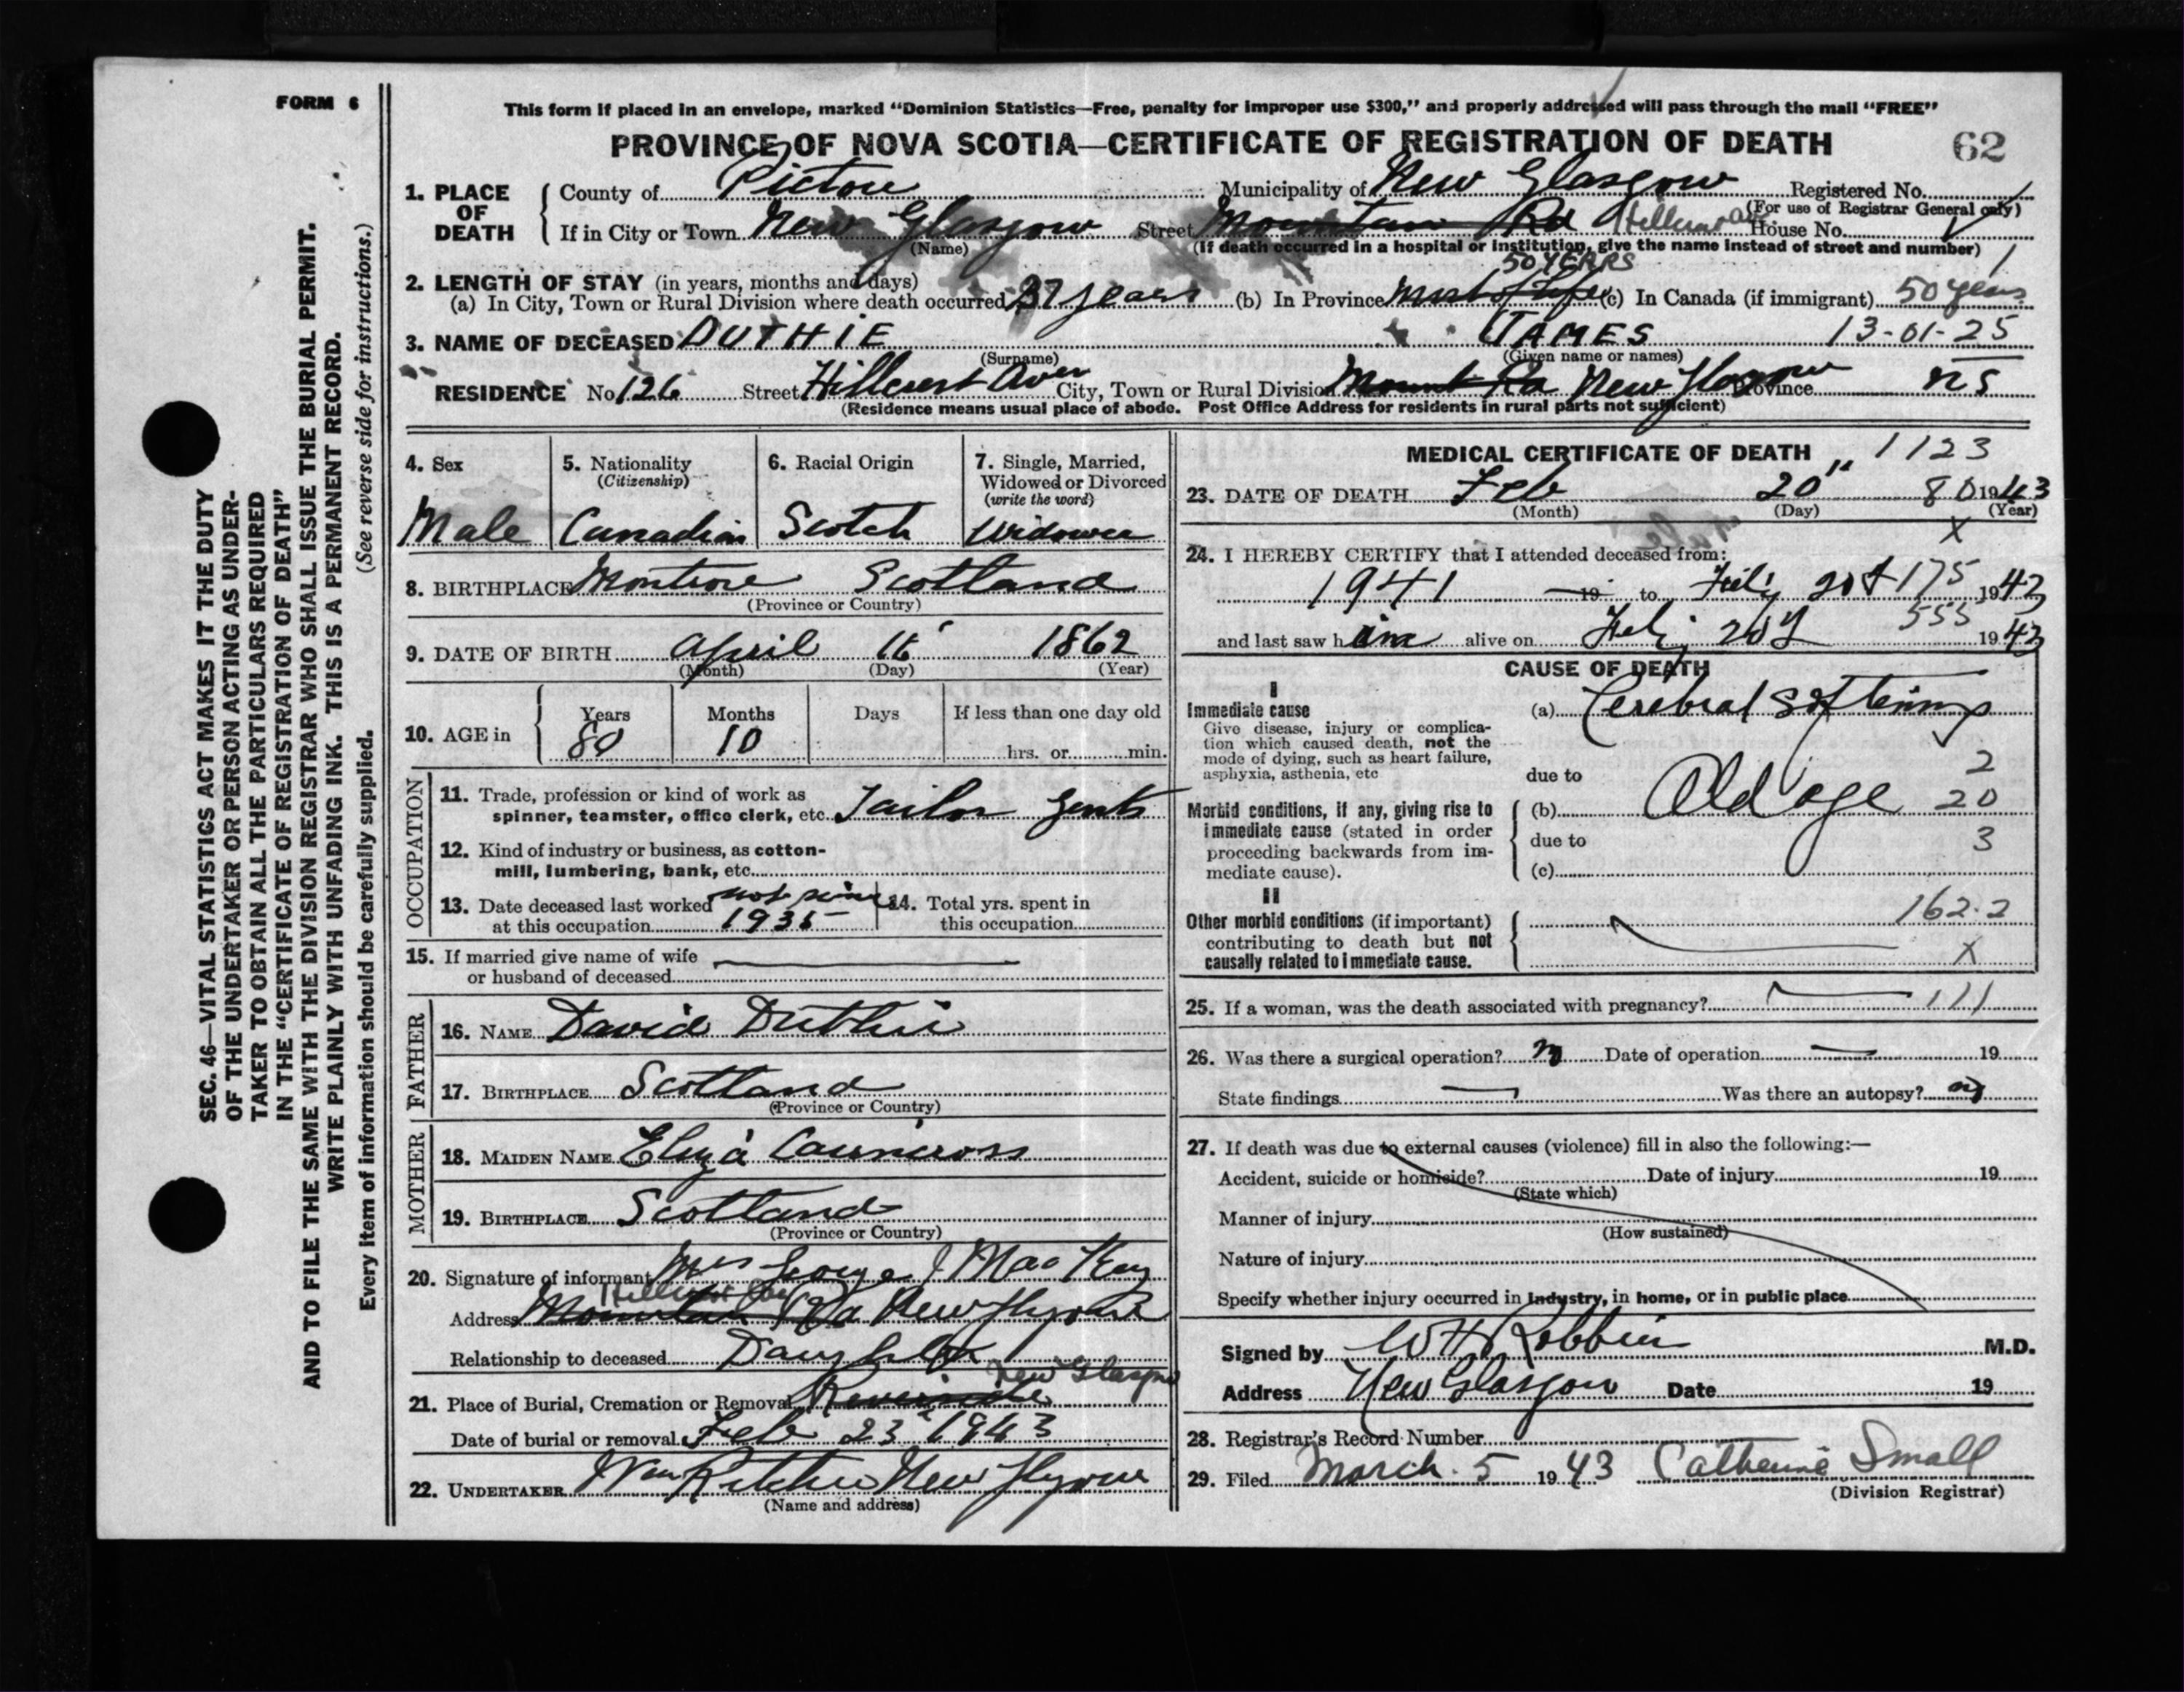 FORM 6
This form if placed in an envelope, marked “Dominion Statistics—Free, penalty for improper use $300,” and properly addressed will pass through the mail “FREE”
PROVINCE OF NOVA SCOTIA—CERTIFICATE OF REGISTRATION OF DEATH 62
1. PLACE OF DEATH
County of Pictou Municipality of New Glasgow Registered No.
(For use of Registrar General only)
If in City or Town New Glasgow Street Mountain Rd House No.
(Name) (If death occurred in a hospital or institution, give the name instead of street and number) 1
50 YEARS
2. LENGTH OF STAY (in years, months and days)
(a) In City, Town or Rural Division where death occurred 37 years (b) In Province Most of Life (c) In Canada (if immigrant) 50 years
3. NAME OF DECEASED DUTHIE JAMES 13-01-25
(Surname) (Given name or names)
RESIDENCE No 126 Street Hillcrest Ave City, Town or Rural Division Mount Rd New Glasgow Province NS
(Residence means usual place of abode. Post Office Address for residents in rural parts not sufficient)
4. Sex
Male
5. Nationality
(Citizenship)
Canadian
6. Racial Origin
Scotch
7. Single, Married,
Widowed or Divorced
(write the word)
Widower
8. BIRTHPLACE Montrose Scotland
(Province or Country)
9. DATE OF BIRTH April 16 1862
(Month) (Day) (Year)
10. AGE in
Years Months Days If less than one day old
80 10 hrs. or min.
OCCUPATION
11. Trade, profession or kind of work as
spinner, teamster, office clerk, etc. Tailor Gents
12. Kind of industry or business, as cotton-
mill, lumbering, bank, etc.
13. Date deceased last worked not since
at this occupation 1935
14. Total yrs. spent in
this occupation
15. If married give name of wife
or husband of deceased
FATHER
16. NAME David Duthie
17. BIRTHPLACE Scotland
(Province or Country)
MOTHER
18. MAIDEN NAME Eliza Cairncross
19. BIRTHPLACE Scotland
(Province or Country)
20. Signature of informant Mrs George J MacKay
Address Mountain Rd New Glasgow
Relationship to deceased Daughter
New Glasgow
21. Place of Burial, Cremation or Removal Riverside
Date of burial or removal Feb 23" 1943
22. UNDERTAKER Ritchie New Glasgow
(Name and address)
MEDICAL CERTIFICATE OF DEATH 1123
23. DATE OF DEATH Feb 20" 80 1943
(Month) (Day) (Year)
X
24. I HEREBY CERTIFY that I attended deceased from:
1941 19 to Feb 20 175 1943
555
and last saw him alive on Feb 20 1943
CAUSE OF DEATH
I
Immediate cause
Give disease, injury or complica-
tion which caused death, not the
mode of dying, such as heart failure,
asphyxia, asthenia, etc
(a) Cerebral Softening
due to 2
Morbid conditions, if any, giving rise to
immediate cause (stated in order
proceeding backwards from im-
mediate cause).
(b) Old age 20
due to 3
(c)
II
Other morbid conditions (if important)
contributing to death but not
causally related to immediate cause.
162.2
X
25. If a woman, was the death associated with pregnancy? 111
26. Was there a surgical operation? no Date of operation 19
State findings Was there an autopsy? no
27. If death was due to external causes (violence) fill in also the following:—
Accident, suicide or homicide? Date of injury 19
(State which)
Manner of injury
(How sustained)
Nature of injury
Specify whether injury occurred in industry, in home, or in public place
Signed by M.D.
Address New Glasgow Date 19
28. Registrar's Record Number
29. Filed March 5 1943 Catherine Small
(Division Registrar)
SEC. 46—VITAL STATISTICS ACT MAKES IT THE DUTY
OF THE UNDERTAKER OR PERSON ACTING AS UNDER-
TAKER TO OBTAIN ALL THE PARTICULARS REQUIRED
IN THE “CERTIFICATE OF REGISTRATION OF DEATH”
AND TO FILE THE SAME WITH THE DIVISION REGISTRAR WHO SHALL ISSUE THE BURIAL PERMIT.
WRITE PLAINLY WITH UNFADING INK. THIS IS A PERMANENT RECORD.
Every item of information should be carefully supplied. (See reverse side for instructions.)